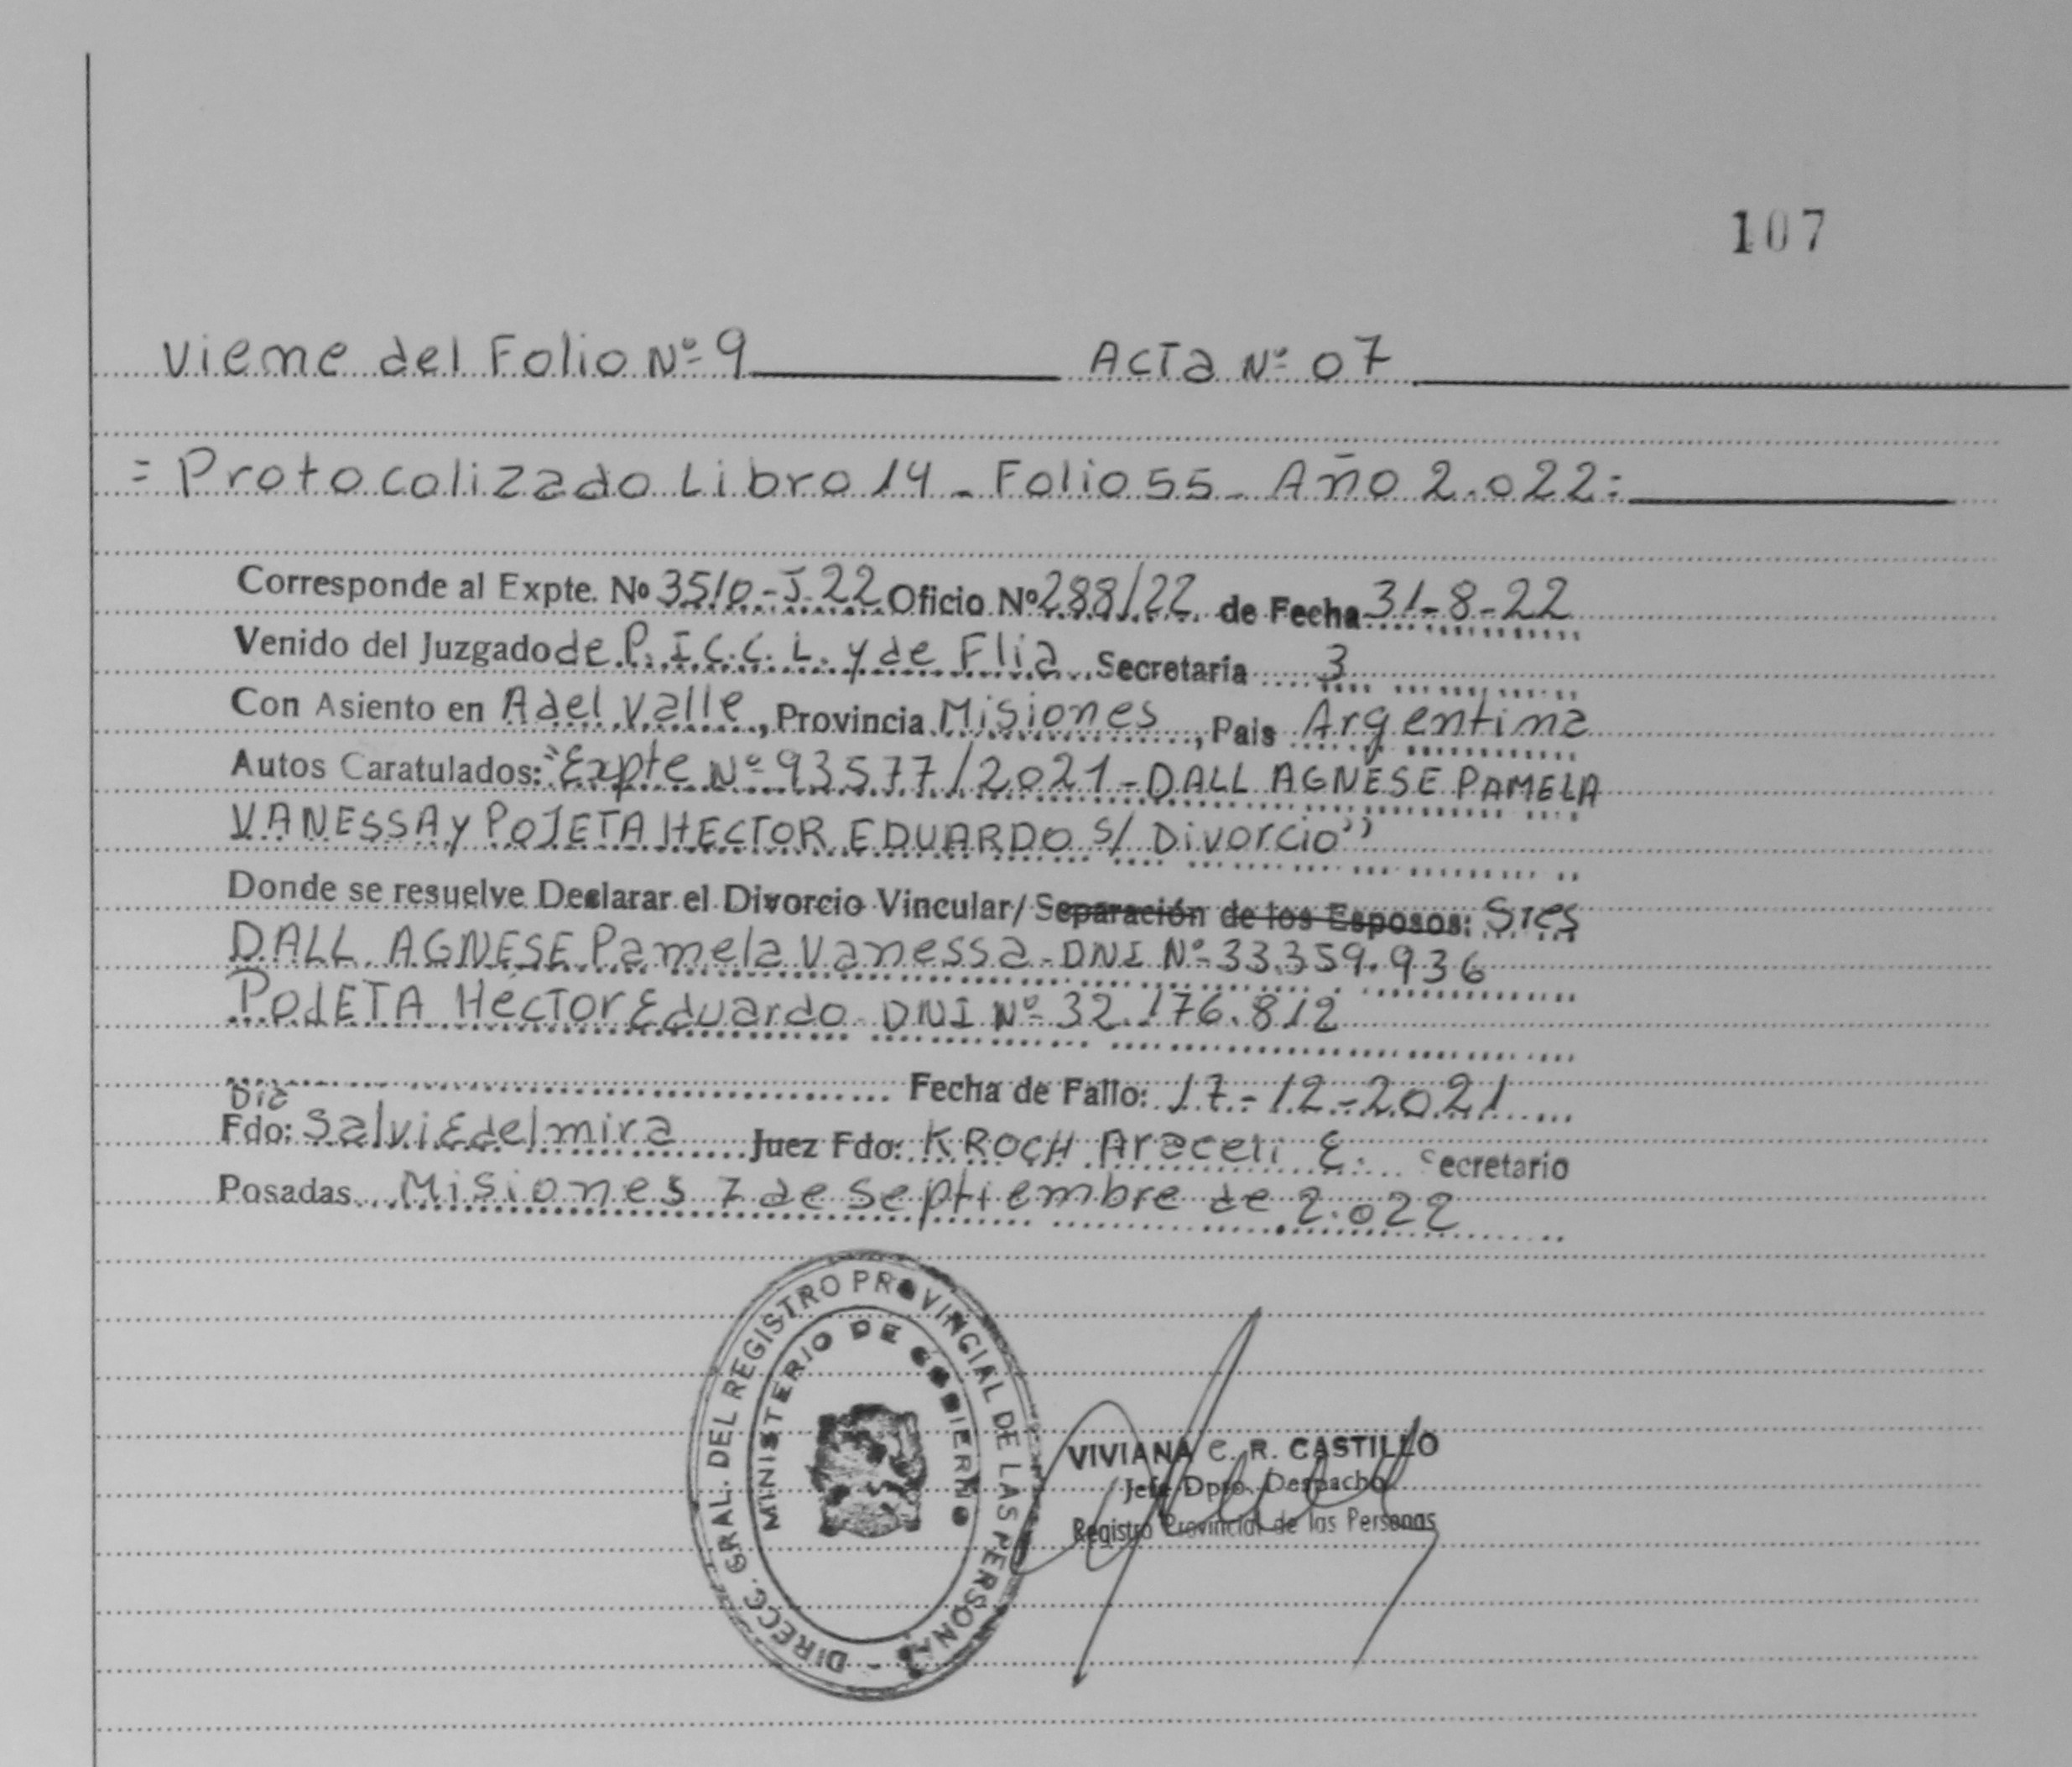 107
Viene del Folio Nº 9 Acta Nº 07
= Protocolizado Libro 14 - Folio 55 - Año 2.022:
Corresponde al Expte. Nº 3510-J-22 Oficio Nº 288/22 de Fecha 31-8-22
Venido del Juzgado de P. I C. C. L. y de Flia Secretaría 3
Con Asiento en A del Valle, Provincia Misiones, Pais Argentina
Autos Caratulados: "Expte Nº 93577/2021 - DALL AGNESE PAMELA
VANESSA y POJETA HECTOR EDUARDO s/ Divorcio"
Donde se resuelve Declarar el Divorcio Vincular/ Separación de los Esposos: Sres
DALL AGNESE Pamela Vanessa - DNI Nº 33.359.936
POJETA Héctor Eduardo DNI Nº 32.176.812
Fecha de Fallo: 17-12-2021
Fdo: Salvi Edelmira Juez Fdo: KROCH Araceli E. Secretario
Posadas Misiones 7 de Septiembre de 2.022
DIRECC. GRAL. DEL REGISTRO PROVINCIAL DE LAS PERSONAS -
MINISTERIO DE GOBIERNO
VIVIANA C. R. CASTILLO
Jefe Dpto. Despacho
Registro Provincial de las Personas